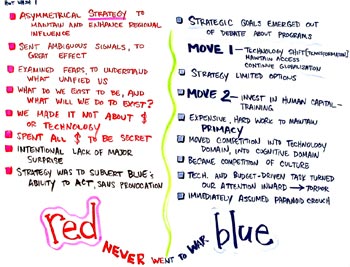 BUT WHEN I
ASYMMETRICAL STRATEGY TO
MAINTAIN AND ENHANCE REGIONAL
INFLUENCE
SENT AMBIGUOUS SIGNALS, TO
GREAT EFFECT
EXAMINED FEARS TO UNDERSTAND
WHAT UNIFIED US
WHAT DO WE EXIST TO BE, AND
WHAT WILL WE DO TO EXIST?
WE MADE IT NOT ABOUT $
OR TECHNOLOGY
SPENT ALL $ TO BE SECRET
INTENTIONAL LACK OF MAJOR
SURPRISE
STRATEGY WAS TO SUBVERT BLUE'S
ABILITY TO ACT, SANS PROVOCATION
red
NEVER WENT TO WAR.
STRATEGIC GOALS EMERGED OUT
OF DEBATE ABOUT PROGRAMS
MOVE 1 - TECHNOLOGY SHIFT [TRANSFORMATION]
MAINTAIN ACCESS
CONTINUE GLOBALIZATION
STRATEGY LIMITED OPTIONS
MOVE 2 - INVEST IN HUMAN CAPITAL -
TRAINING
EXPENSIVE, HARD WORK TO MAINTAIN
PRIMACY
MOVED COMPETITION INTO TECHNOLOGY
DOMAIN, INTO COGNITIVE DOMAIN
BECAME COMPETITION OF CULTURE
TECH. AND BUDGET-DRIVEN TASK TURNED
OUR ATTENTION INWARD → TORPOR
IMMEDIATELY ASSUMED PARANOID CROUCH
blue